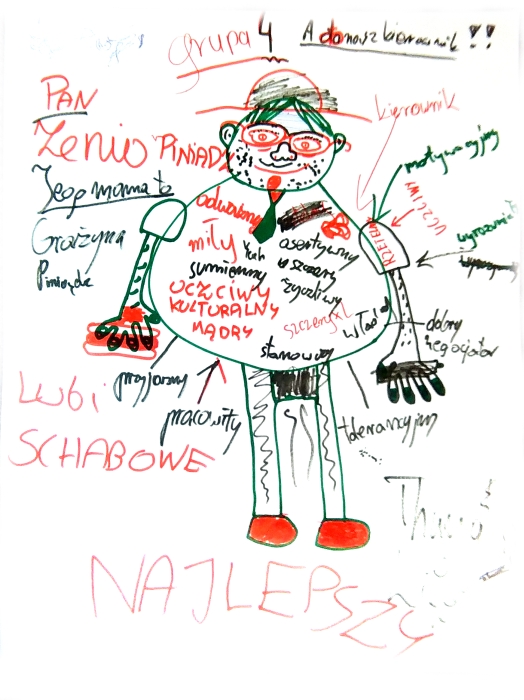 grupa 4
A donosz kierownik !!
PAN
Zenio "PINIĄDZ"
Jego mama to
Grażyna
Piniądz
kierownik
motywacyjny
UCZCIWY
RZETELNY
odważny
miły
sumienny
UCZCIWY
KULTURALNY
MĄDRY
asertywny
wszczery
życzliwy
szczery XL
stanowczy
dobry
negocjator
przyjazny
pracowity
tolerancyjny
LUBI
SCHABOWE
NAJLEPSZY